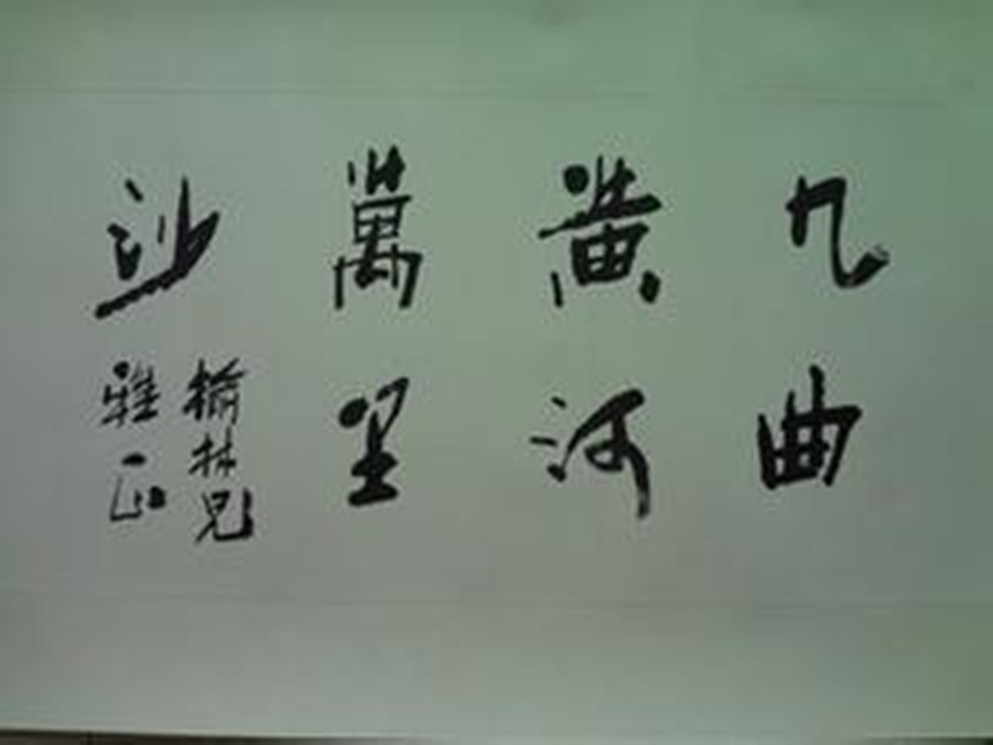 九曲
黄河
萬里
沙
榆林兄
雅正